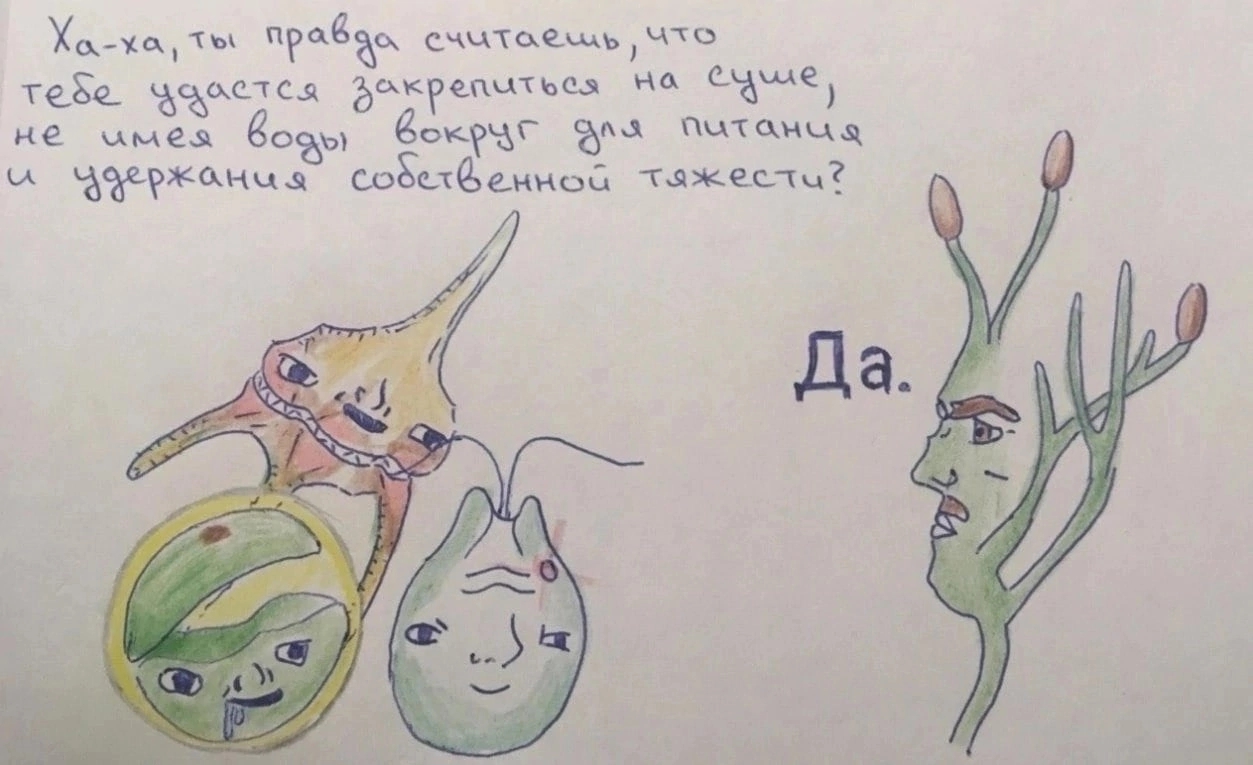 Ха-ха, ты правда считаешь, что
тебе удастся закрепиться на суше,
не имея воды вокруг для питания
и удержания собственной тяжести?
Да.